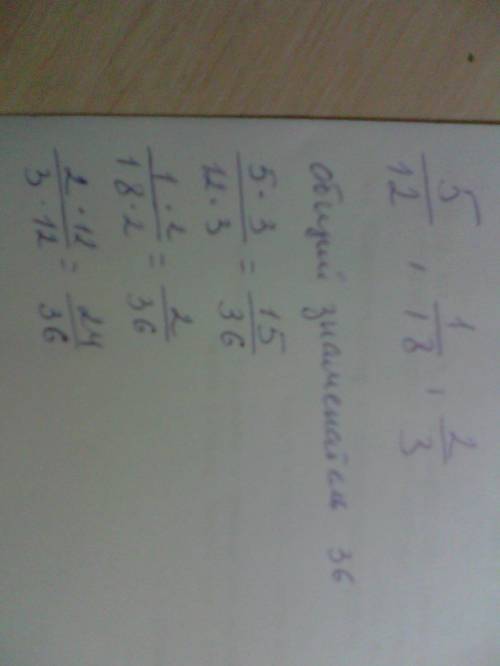 5/12, 1/18, 2/3
общий знаменатель 36
5·3/12·3 = 15/36
1·2/18·2 = 2/36
2·12/3·12 = 24/36